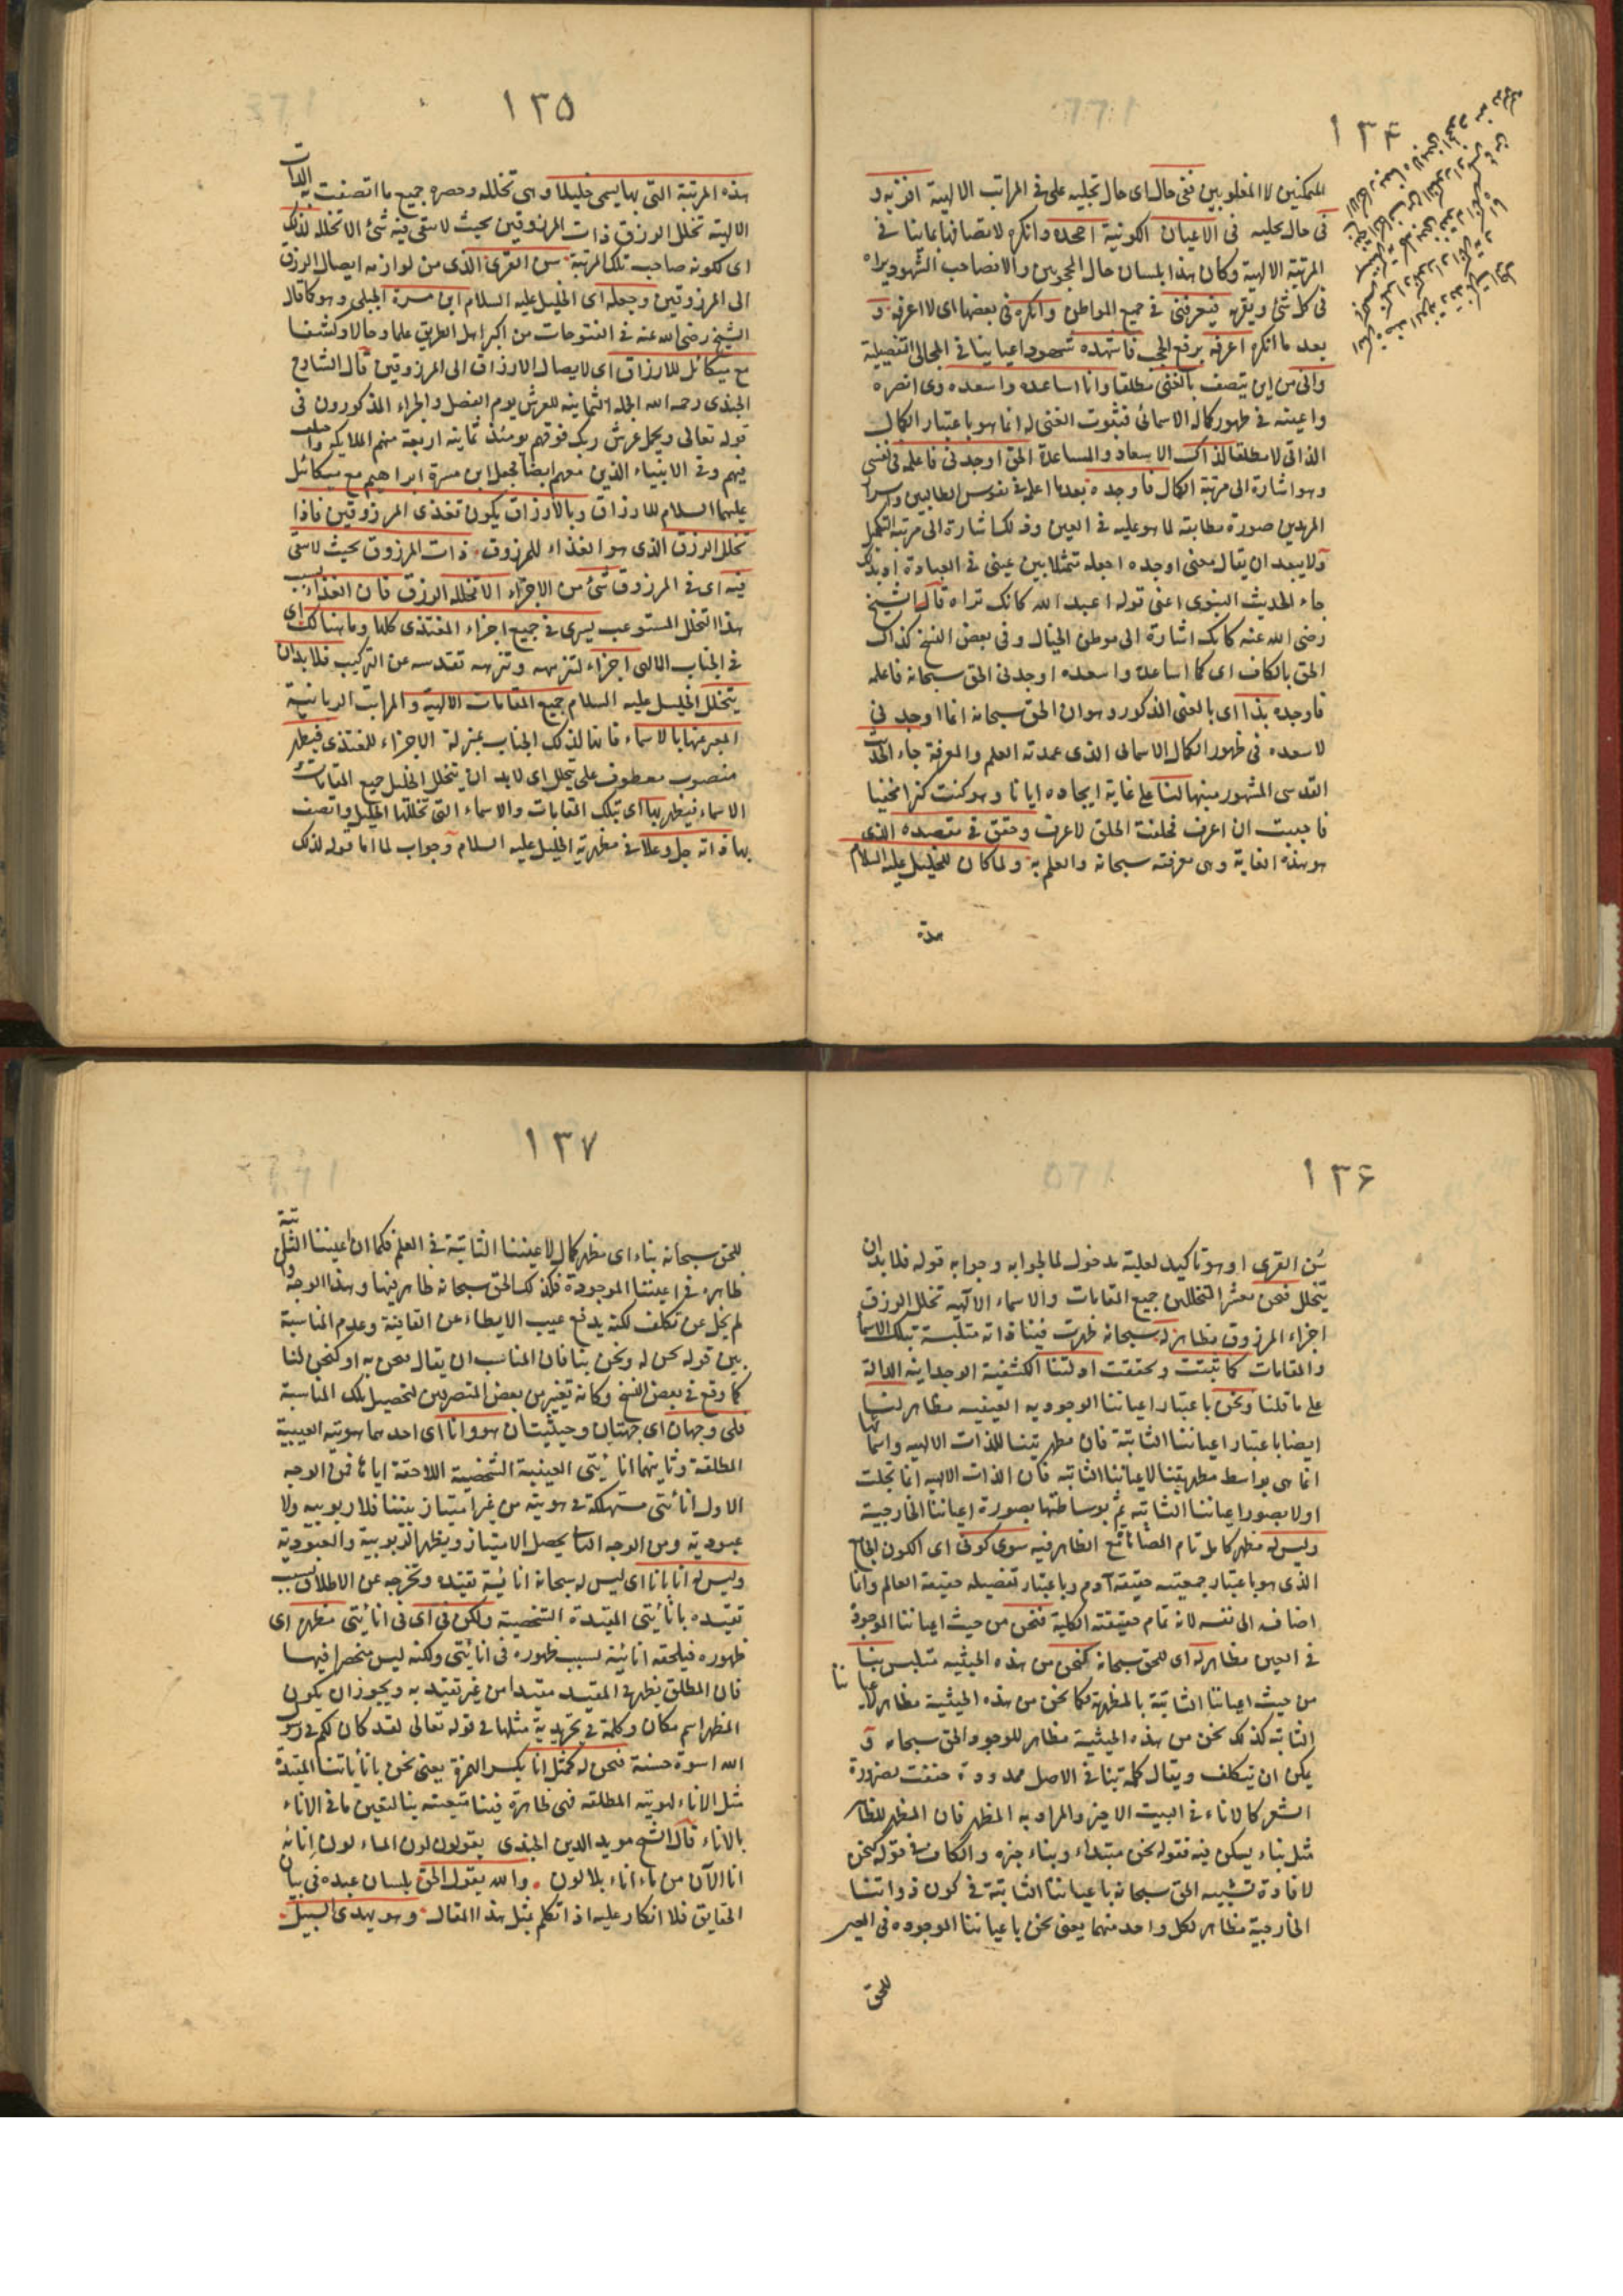 ١٣٤
الممكنين لا المغلوبين ففى حال اى حال تجليه على فى المراتب الالهية اقر به و
فى حال تجليه فى الاعيان الكونية اجحده وانكره لاتصافها بما ينافى
المرتبة الالهية وكان هذا بلسان حال المحجوبين والا فصاحب الشهود يراه
فى كل شئ ويقر به فيعرفنى فى جميع المواطن وانكره فى بعضها اى لا اعرفه و
بعد ما انكره اعرفه برفع الحجب فاشهده شهودا عيانيا فى المجالى التفصيلية
وانى من اين يتصف بالغنى مطلقا وانا اساعده واسعده وى انصره
واعينه فى ظهور كماله الاسمائى فثبوت الغنى له انما هو باعتبار الكمال
الذاتى لا مطلقا لذاك الاسعاد والمساعدة الحق اوجدنى فاعلمه فى نفسى
وهو اشارة الى مرتبة الكمال فاوجده بعدما اعلمه فى نفوس الطالبين واسرار
المريدين صورة مطابقة لما هو عليه فى العين وذلك اشارة الى مرتبة التكميل
ولا يبعد ان يقال معنى اوجده اجعله متمثلا بين عينى فى العبادة او بذلك
جاء الحديث النبوى اعنى قوله اعبد الله كانك تراه قال الشيخ
رضى الله عنه كانك اشارة الى موطن الخيال وفى بعض النسخ كذاك
الحق بالكاف اى كما اساعده واسعده اوجدنى الحق سبحانه فاعلمه
فاوجده بذا اى بالمعنى المذكور وهو ان الحق سبحانه انما اوجدنى
لاسعده فى ظهور الكمال الاسمائى الذى عمدته العلم والمعرفة جاء الحديث
القدسى المشهور منبها لنا على غاية ايجاده ايانا وهو كنت كنزا مخفيا
فاحببت ان اعرف فخلقت الخلق لاعرف وحقق فى مقصده الذى
هو هذه الغاية وهى معرفته سبحانه والعلم به ولما كان للخليل عليه السلام
هذه
١٣٥
هذه المرتبة التى بها يسمى خليلا وهى تخلله وحصره جميع ما اتصفت به الذات
الالهية تخلل الرزق ذات المرزوقين بحيث لا تبقى فيه شئ الا تخلله لذلك
اى لكونه صاحب تلك المرتبة سن القرى الذى من لوازمه ايصال الرزق
الى المرزوقين وجعله اى الخليل عليه السلام ابن مسرة الجبلى وهو كما قال
الشيخ رضى الله عنه فى الفتوحات من اكبر اهل الطريق علما وحالا وكشفا
مع ميكائيل للارزاق اى لايصال الارزاق الى المرزوقين قال الشارح
الجندى رحمه الله الحملة الثمانية للعرش يوم الفصل والجزاء المذكورون فى
قوله تعالى ويحمل عرش ربك فوقهم يومئذ ثمانية اربعة منهم الملايكه
منهم وفى الانبياء الذين معهم ايضا فجعل ابن مسرة ابراهيم مع ميكائيل
عليهما السلام للارزاق وبالارزاق يكون تغذى المرزوقين فاذا
تخلل الرزق الذى هو الغذاء للمرزوق ذات المرزوق بحيث لا يبقى
فيه اى فى المرزوق شئ من الاجزاء الا تخلله الرزق فان الغذاء بسبب
هذا التخلل المستوعب يسرى فى جميع اجزاء المغتذى كلها وما هنالك اى
فى الجناب الالهى اجزاء لتنزهه وتنزه تقدسه عن التركيب فلا بد ان
يتخلل الخليل عليه السلام جميع المقامات الالهية والمراتب الربانية
المعبر عنها بالاسماء فانها لذلك الجناب بمنزلة الاجزاء للمغتذى فيظهر
منصوب معطوف على تخلل اى لا بد ان يتخلل الخليل جميع المقامات و
الاسماء فيظهر بها اى تلك المقامات والاسماء التى تخللها الخليل واتصف
بها ذاته جل وعلا فى مظهرية الخليل عليه السلام وجواب لما اما قوله لذلك
١٣٦
سن القرى او هو تاكيد لعلية مدخول لما لجوابه وجوابه قوله فلا بد ان
يتخلل فنحن معشر المتخللين جميع المقامات والاسماء الالهيه تخلل الرزق
اجزاء المرزوق مظاهر له سبحانه ظهرت فينا ذاته متلبسة بتلك الاسماء
والمقامات كما ثبتت وتحققت ادلتنا الكشفية الوجدانيه الدالة
على ما قلنا ونحن باعتبار اعياننا الوجوديه العينيه مظاهر لنا
ايضا باعتبار اعياننا الثابتة فان مظهريتنا للذات الالهيه واسمائها
انما هى بواسطة مظهريتنا لاعياننا الثابته فان الذات الالهيه انما تجلت
اولا بصور اعياننا الثابته ثم بوساطتها بصورة اعياننا الخارجية
وليس له مظهر كامل تام الظاهر فيه سوى كونى اى الكون الجامع
الذى هو باعتبار جمعيته حقيقة آدم وباعتبار تفصيله حقيقة العالم وانما
اضافه الى نفسه لانه تمام حقيقته الكلية فنحن من حيث اعياننا الموجودة
فى العين مظاهر له اى للحق سبحانه كنحن من هذه الحيثيه متلبس بنا
من حيث اعياننا الثابتة بالمظهرية فكما نحن من هذه الحيثية مظاهر لاعياننا
الثابته كذلك نحن من هذه الحيثية مظاهر للوجود الحق سبحانه و
يمكن ان يتكلف ويقال كلمة بنا فى الاصل ممدودة حذفت بضرورة
الشعر كالاناء فى البيت الاخير والمراد به المظهر فان المظهر للظاهر
مثل بناء يسكن فيه فقوله نحن مبتداء وبناء خبره والكاف فى قوله كنحن
لافادة تشبيه الحق سبحانه باعياننا الثابتة فى كون ذواتنا
الخارجية مظاهر لكل واحد منهما يعنى نحن باعياننا الموجوده فى العين
للحق
١٣٧
للحق سبحانه بناء اى مظهر كمال لاعيننا الثابتة فى العلم فكما ان اعيننا الثابتة
ظاهرة فى اعيننا الموجودة فكذلك الحق سبحانه ظاهر فيها وهذا الوجه وان
لم يخل عن تكلف لكنه يدفع عيب الايطاء عن القافية وعدم المناسبة
بين قوله نحن له ونحن بنا فان المناسب ان يقال نحن به او كنحن لنا
كما وقع فى بعض النسخ وكانه تغيير من بعض المتصرفين لتحصيل تلك المناسبة
فلى وجهان اى جهتان وحيثيتان هو وانا اى احدهما هويته الغيبية
المطلقة وثانيهما انائيتى العينية الشخصية اللاحقة اياها فمن الوجه
الاول انائيتى مستهلكة فى هويته من غير امتياز بيننا فلا ربوبيه ولا
عبودية ومن الوجه الثانى يحصل الامتياز ويظهر الربوبية والعبودية
وليس له انا بانا اى ليس له سبحانه انائية تقيده وتخرجه عن الاطلاق بسبب
تقيده بانائيتى المقيدة الشخصية ولكن فى اى فى انائيتى مظهره اى
ظهوره فيلحقه انائية بسبب ظهوره فى انائيتى ولكنه ليس منحصرا فيها
فان المطلق يظهر فى المقيد مقيدا من غير تقيد به ويجوز ان يكون
المظهر اسم مكان وكلمة فى تجريدية مثلها فى قوله تعالى لقد كان لكم فى رسول
الله اسوة حسنة فنحن له كمثل انا بكسر الهمزة يعنى نحن بانائياتنا المقيدة
مثل الاناء لهويته المطلقة فهى ظاهرة فينا متعينه بنا لتعين ما فى الاناء
بالاناء قال الشيخ مويد الدين الجندى يقولون لون الماء لون انائه
انا الآن من ماء اناء بلا لون والله يقول الحق بلسان عبده فى بيان
الحقايق فلا انكار عليه اذا تكلم بمثل هذا المقال وهو يهدى السبيل